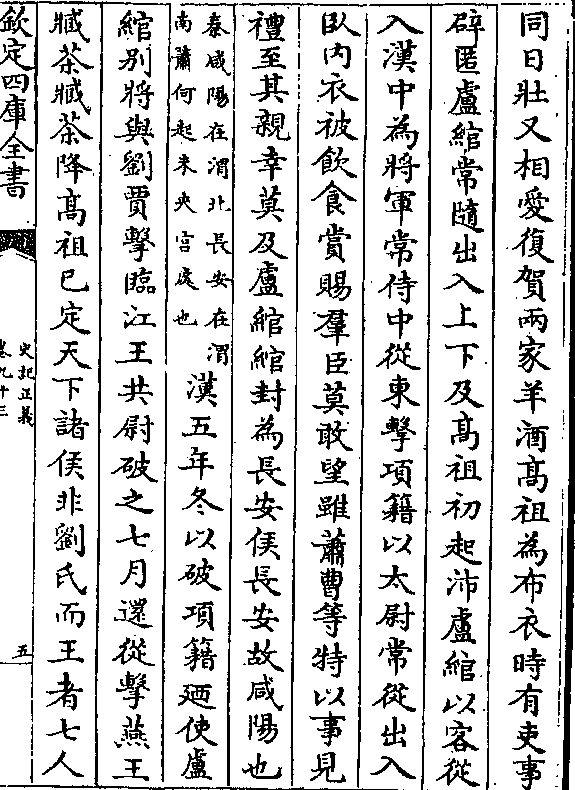 同日壯又相愛復賀兩家羊酒髙祖為布衣時有吏事
辟匿盧綰常隨出入上下及髙祖初起沛盧綰以客從
入漢中為將軍常侍中從東擊項籍以太尉常從出入
臥内衣被飲食賞賜羣臣莫敢望雖蕭曹等特以事見
禮至其親幸莫及盧綰綰封為長安侯長安故咸陽也
秦咸陽在渭北長安在渭
南蕭何起未央宫處也
漢五年冬以破項籍廼使盧
綰别將與劉賈擊臨江王共尉破之七月還從擊燕王
臧荼臧荼降髙祖已定天下諸侯非劉氏而王者七人
欽定四庫全書
史記正義
卷九十三
五